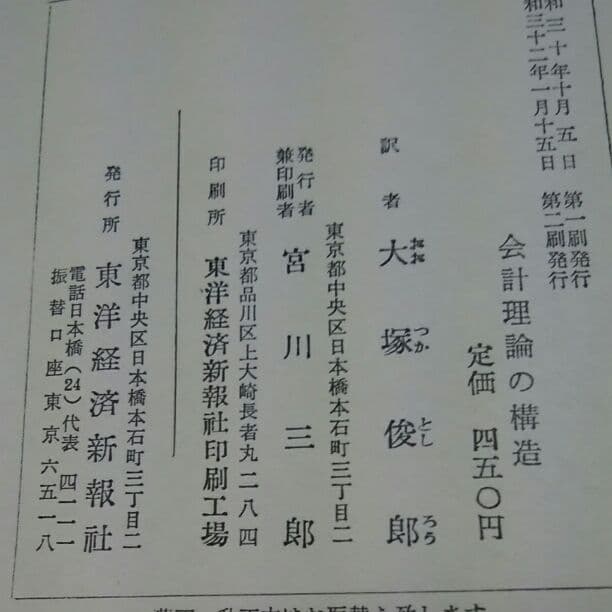 和三十年十月五日 第一刷発行
和三十二年一月十五日 第二刷発行
会計理論の構造
定価 四五〇円
訳者 大塚俊郎
おお つか とし ろう
東京都中央区日本橋本石町三丁目二
発行者兼印刷者 宮川三郎
東京都品川区上大崎長者丸二八四
印刷所 東洋経済新報社印刷工場
東京都中央区日本橋本石町三丁目二
発行所 東洋経済新報社
電話日本橋(24)代表 四一一一
振替口座東京六五一八